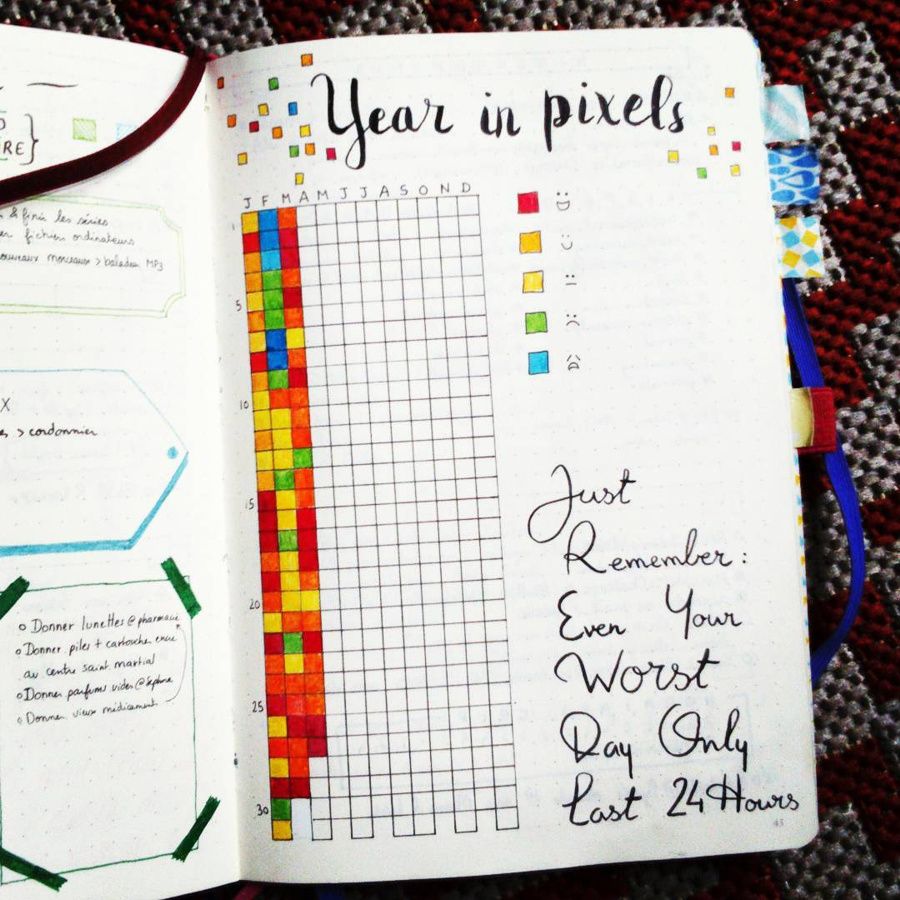 RE}
& finir les séries
fichiers ordinateurs
nouveaux morceaux > baladeur MP3
X
> cordonnier
Donner lunettes @ pharmacie
Donner piles + cartouches encre
au centre saint martial
Donner parfums vides @ Sephora
Donner vieux médicaments
Year in pixels
J F M A M J J A S O N D
1
5
10
15
20
25
30
:D
:)
:|
:(
Just
Remember:
Even Your
Worst
Day Only
Last 24 Hours